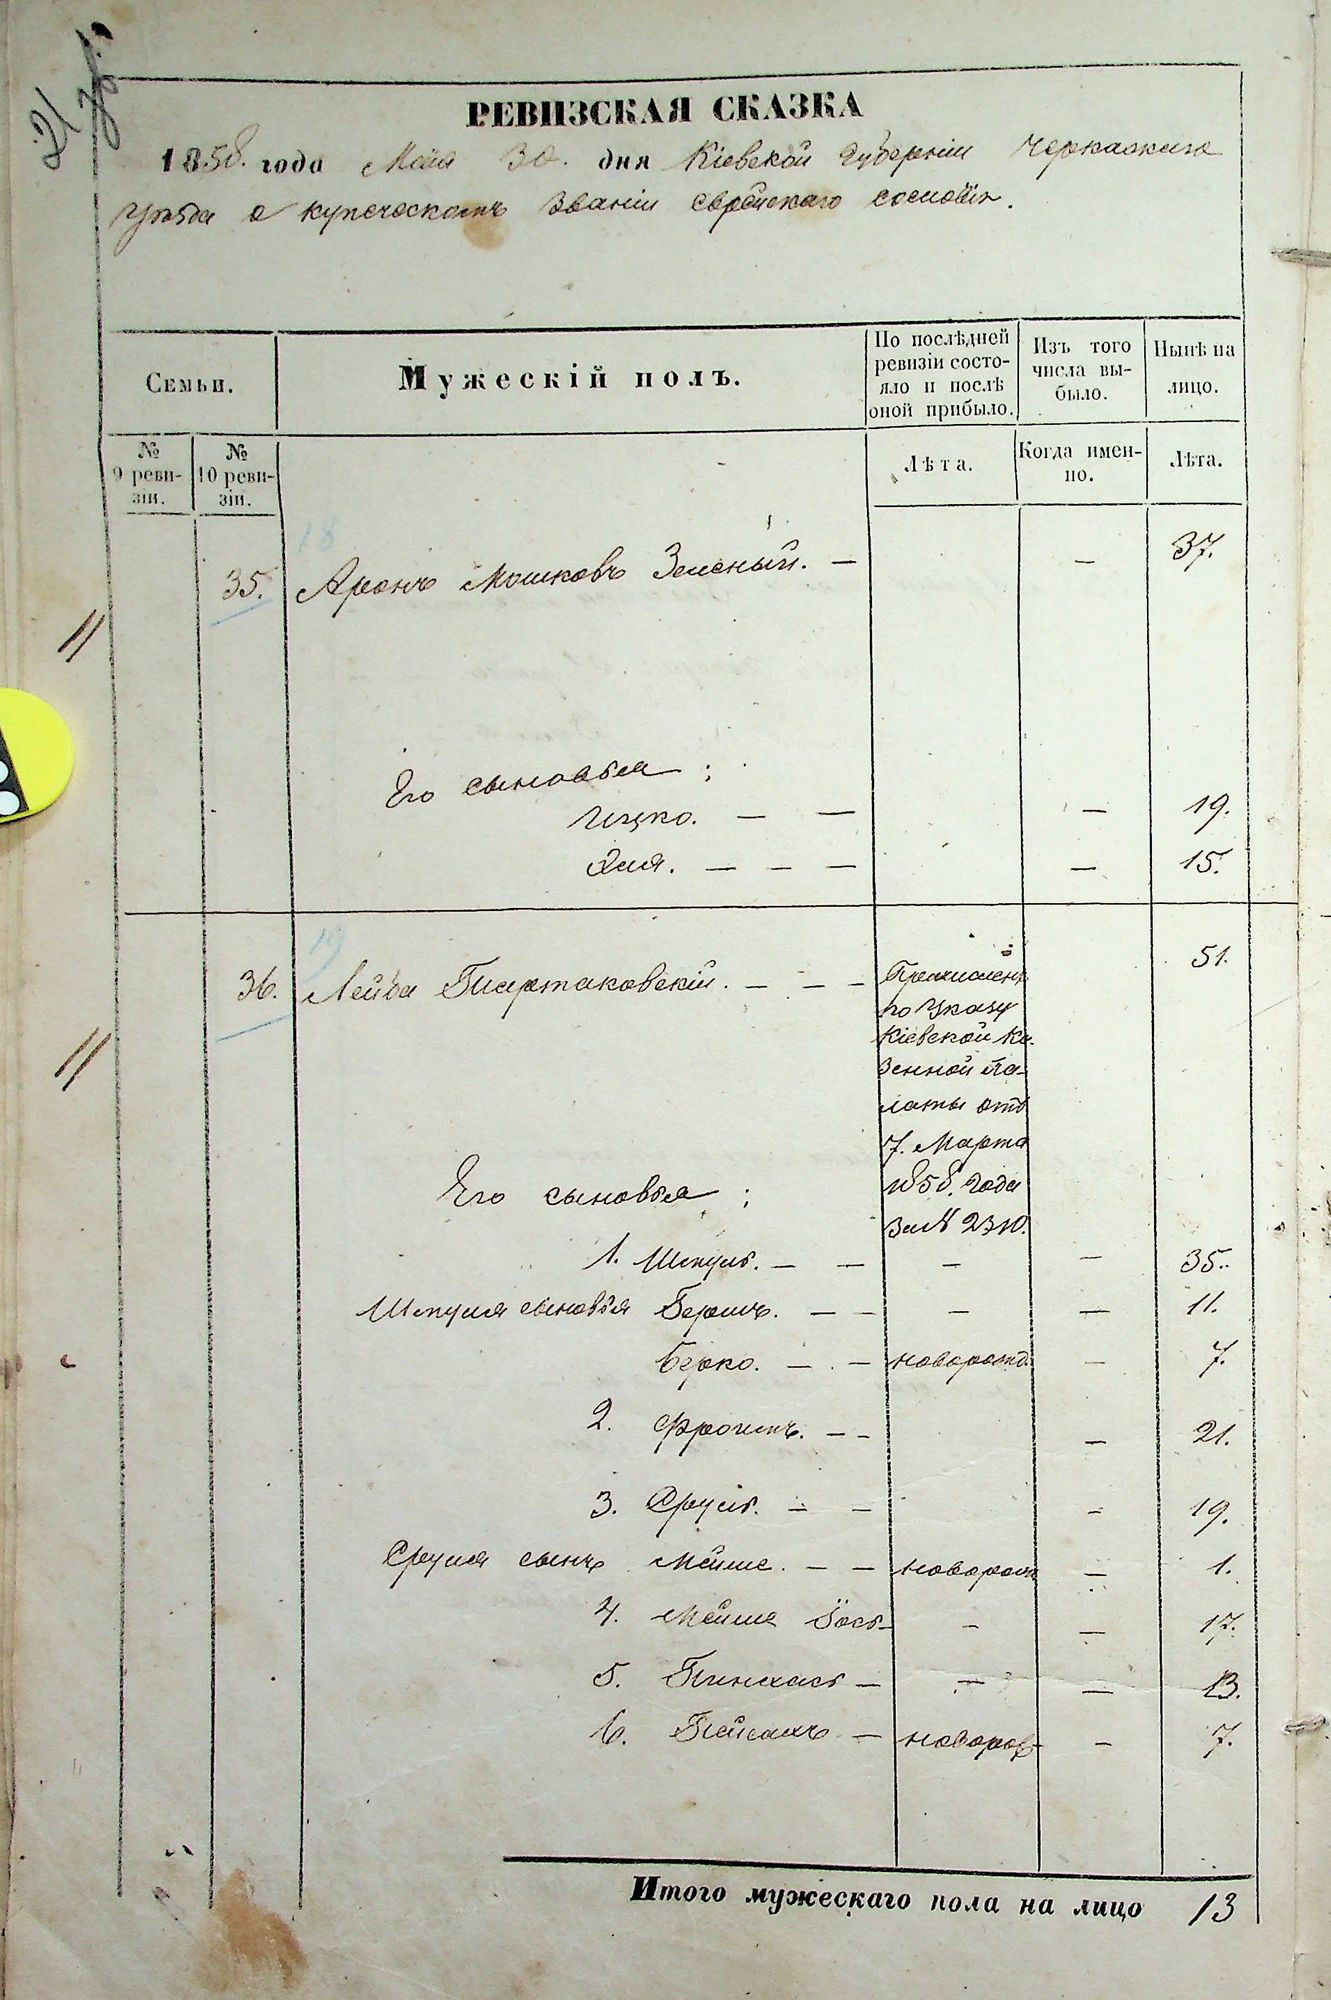 21
РЕВИЗСКАЯ СКАЗКА
1858. года Мая 30. дня Кіевской Губерніи Черкаскаго
уѣзда о купеческомъ званіи еврейскаго сословія.
Семьи.
Мужескій полъ.
По послѣдней ревизіи состо-
яло и послѣ оной прибыло.
Изъ того числа вы-
было.
Нынѣ на лицо.
№ 9 реви-
зіи.
№ 10 реви-
зіи.
Лѣта.
Когда имен-
но.
Лѣта.
18
35. Аронъ Мошковъ Зеленый. — — 37.
Его сыновья:
Ицко. — — — 19.
Эля. — — — — 15.
19
36. Лейба Піартаковскій. — — — 51.
Причисленъ
по Указу
Кіевской Ка-
зенной Па-
латы отъ
7. Марта
1858. года
за № 2310.
Его сыновья:
1. Шмуль. — — — — 35.
Шмуля сыновья Гершъ. — — — — 11.
Берко. — — новорожд. — 7.
2. Фроимъ. — — — 21.
3. Сруль. — — — 19.
Сруля сынъ Мейше. — — новорож — 1.
4. Мейше Іось — — — 17.
5. Пинхасъ — — — 13.
6. Пейсахъ — новорож — 7.
Итого мужескаго пола на лицо 13